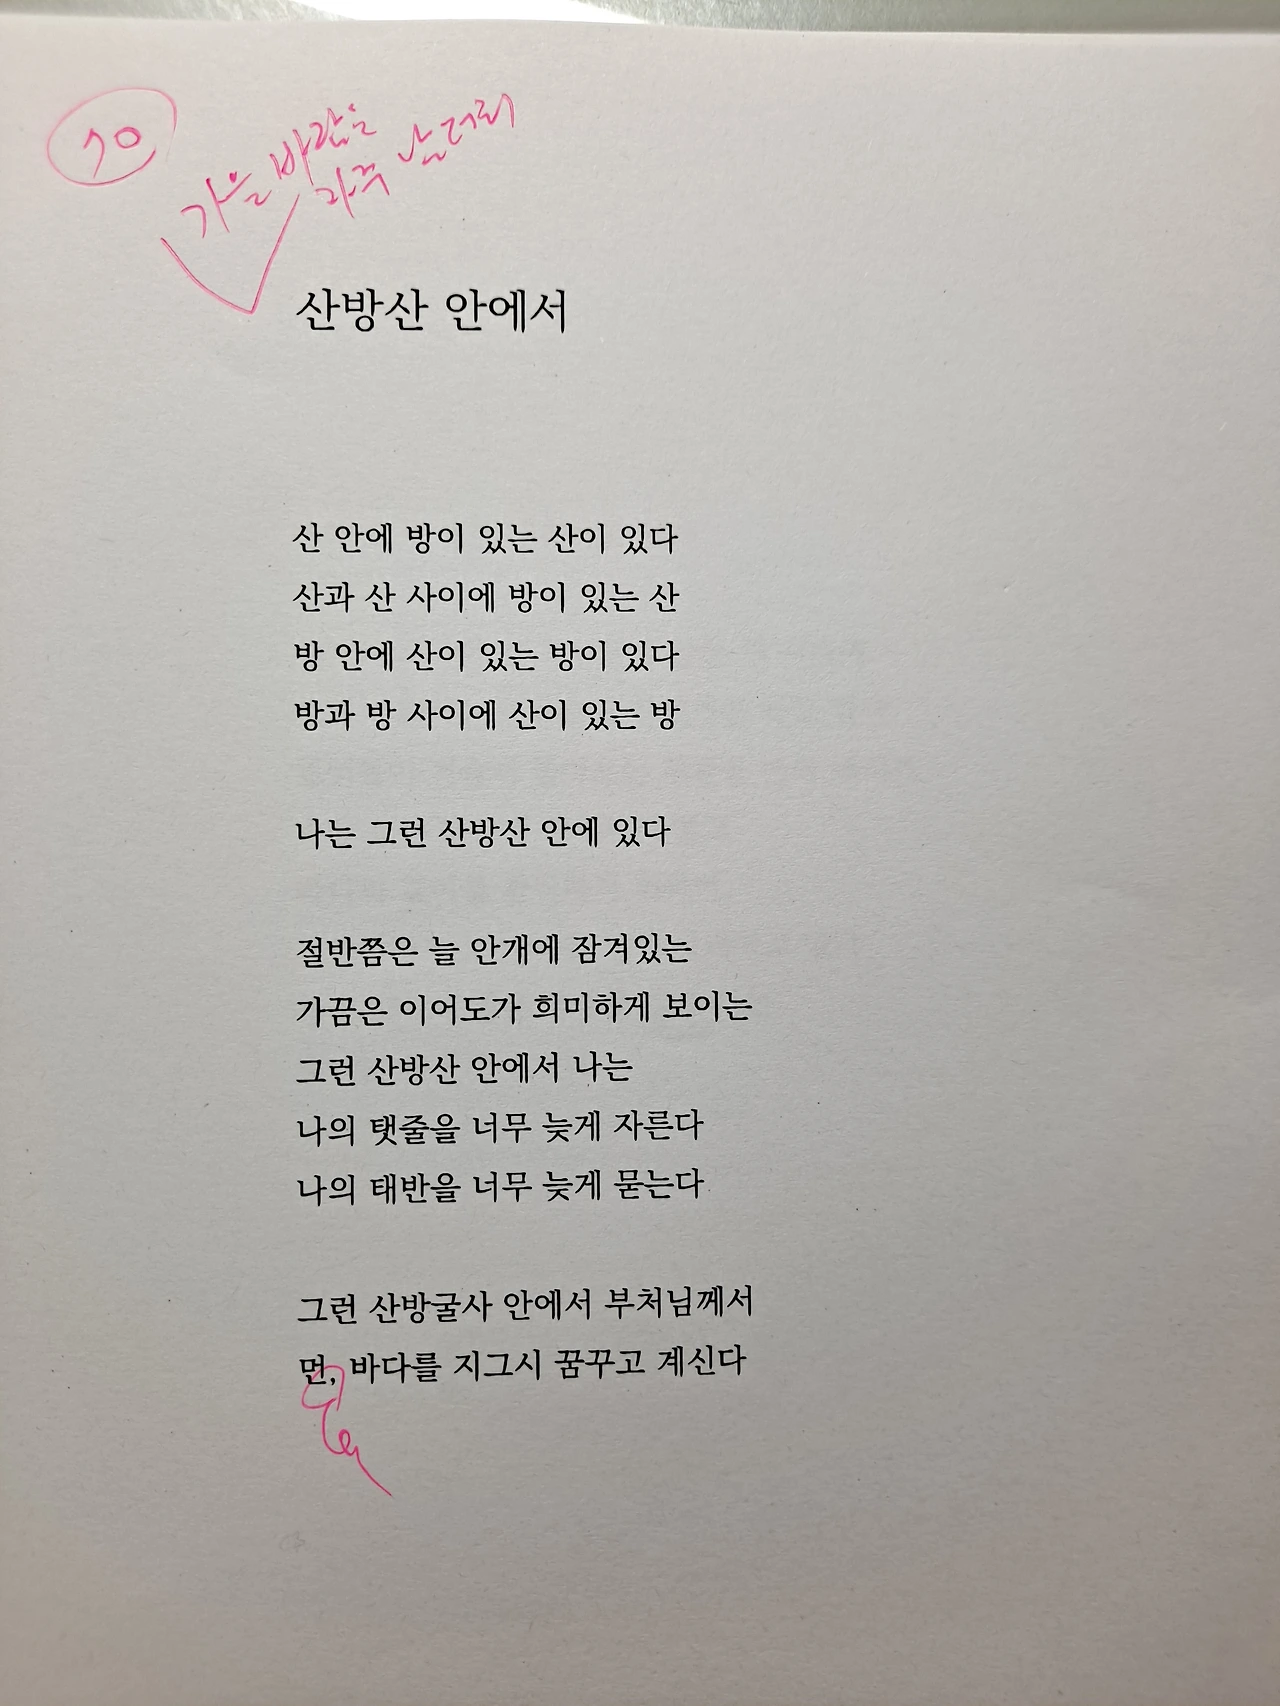 70
가을 바람은
자꾸
산방산 안에서
산 안에 방이 있는 산이 있다
산과 산 사이에 방이 있는 산
방 안에 산이 있는 방이 있다
방과 방 사이에 산이 있는 방
나는 그런 산방산 안에 있다
절반쯤은 늘 안개에 잠겨있는
가끔은 이어도가 희미하게 보이는
그런 산방산 안에서 나는
나의 탯줄을 너무 늦게 자른다
나의 태반을 너무 늦게 묻는다
그런 산방굴사 안에서 부처님께서
먼, 바다를 지그시 꿈꾸고 계신다